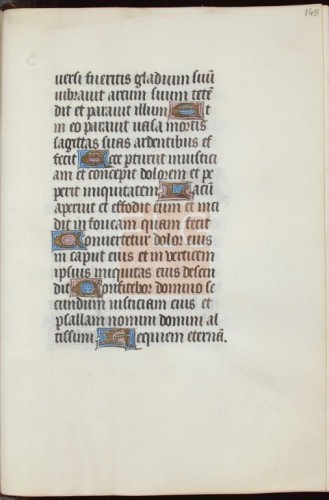 145
C
uersi fueritis gladium suũ
uibrauit arcum suum tetẽ
dit et parauit illum Et
in eo parauit uasa mortis
sagittas suas ardentibus ef
fecit Ecce parturit iniustici
am et concepit dolorem et pe
perit iniquitatem Lacũ
aperuit et effodit eum et inci
dit in foueam quam fecit
Conuertetur dolor eius
in caput eius et in verticem
ipsius iniquitas eius descen
dit Confitebor domino se
cundum iusticiam eius et
psallam nomini domini al
tissimi Requiem eternã.